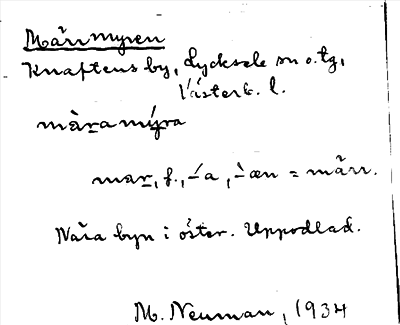 Märrmyren
Knaftens by, Lycksele sn o. tg,
Västerb. l.
màra mýra
mar, f., -́a, -̀æn = märr.
Nära byn i öster. Uppodlad.
M. Neuman, 1934